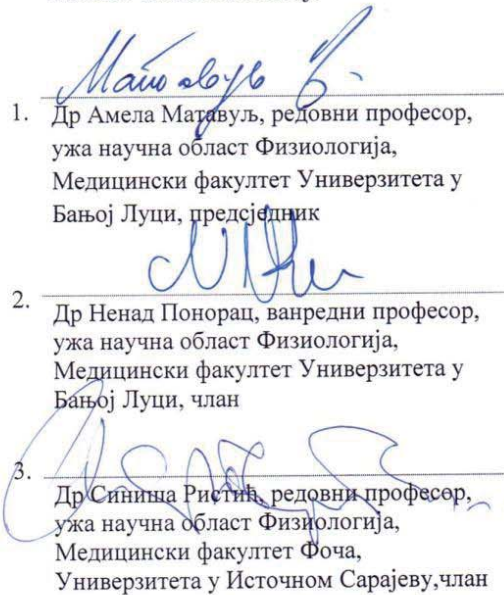 1.
Др Амела Матавуљ, редовни професор,
ужа научна област Физиологија,
Медицински факултет Универзитета у
Бањој Луци, предсједник
2.
Др Ненад Понорац, ванредни професор,
ужа научна област Физиологија,
Медицински факултет Универзитета у
Бањој Луци, члан
3.
Др Синиша Ристић, редовни професор,
ужа научна област Физиологија,
Медицински факултет Фоча,
Универзитета у Источном Сарајеву,члан